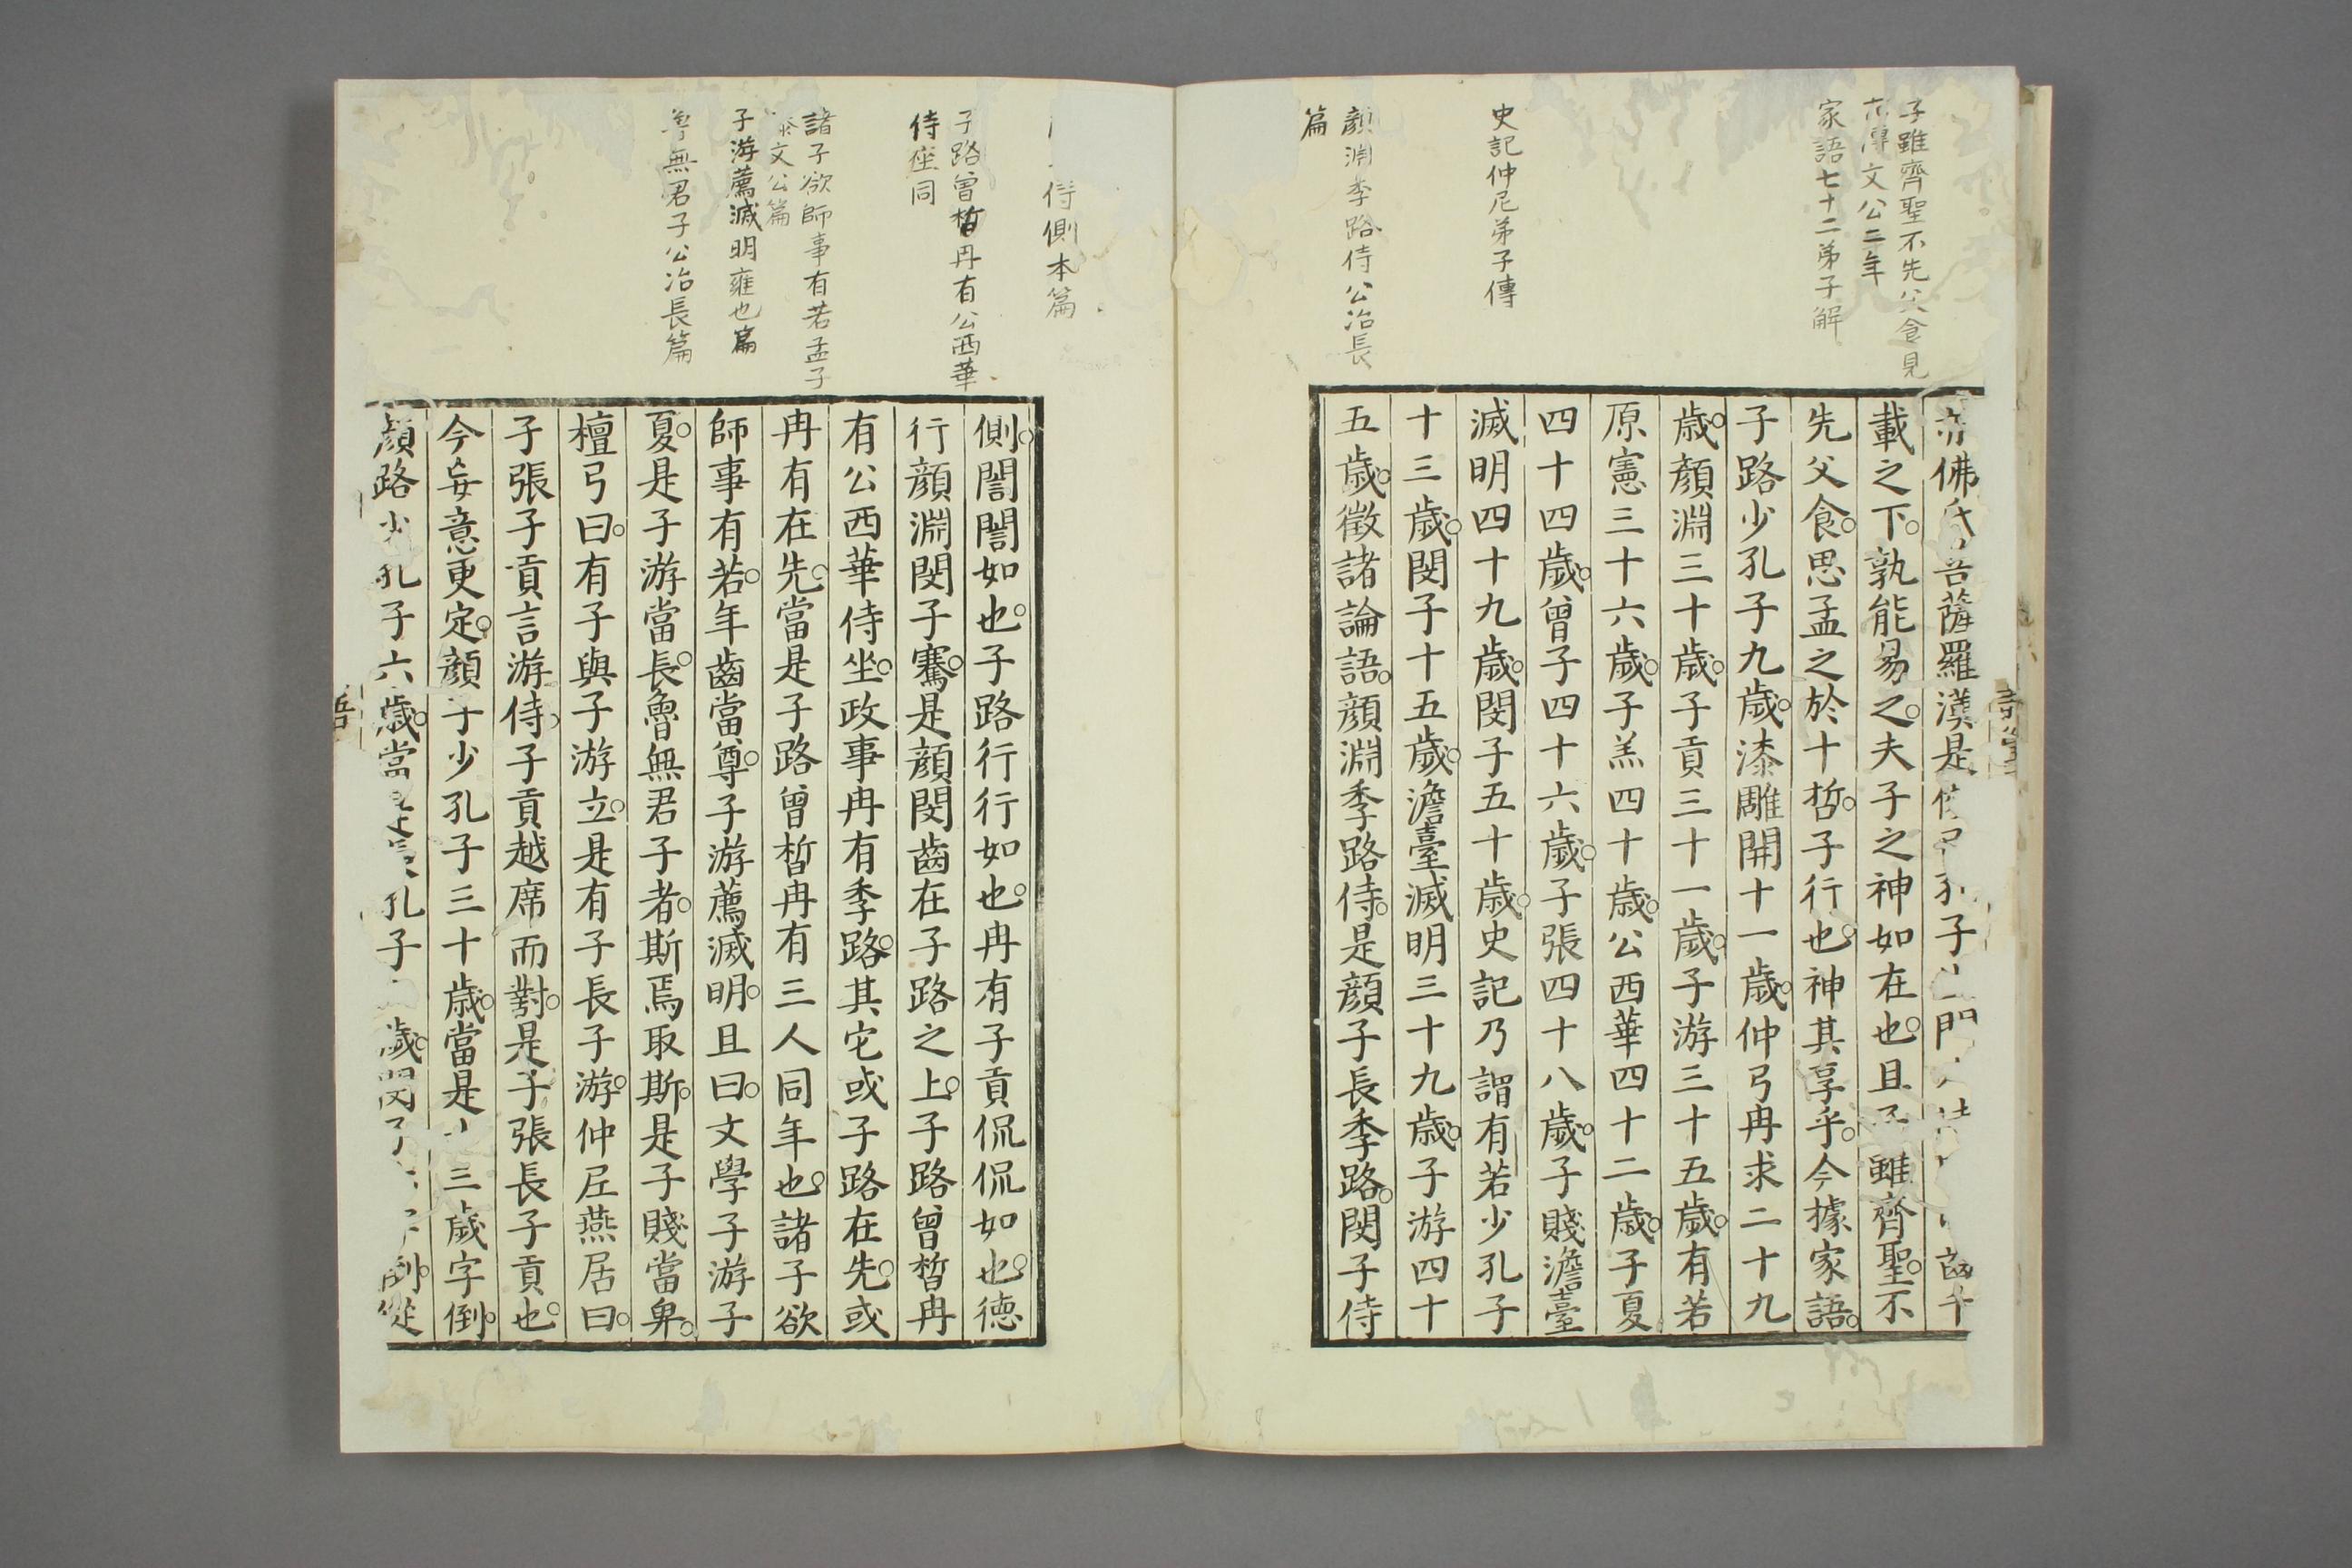 子雖齊聖不先父食見
傳文公二年
家語七十二弟子解
史記仲尼弟子傳
顏淵季路侍公冶長
篇
亦佛氏菩薩羅漢是孔子門
載之下孰能易之夫子之神如在也且子雖齊聖不
先父食思孟之於十哲子行也神其享乎今據家語
子路少孔子九歲漆雕開十一歲仲弓冉求二十九
歲顏淵三十歲子貢三十一歲子游三十五歲有若
原憲三十六歲子羔四十歲公西華四十二歲子夏
四十四歲曾子四十六歲子張四十八歲子賤澹臺
滅明四十九歲閔子五十歲史記乃謂有若少孔子
十三歲閔子十五歲澹臺滅明三十九歲子游四十
五歲徵諸論語顏淵季路侍是顏子長季路閔子侍
侍側本篇
子路曾皙冉有公西華
侍座同
諸子欲師事有若孟子
文公篇
子游薦滅明雍也篇
魯無君子公冶長篇
側誾誾如也子路行行如也冉有子貢侃侃如也德
行顏淵閔子騫是顏閔齒在子路之上子路曾皙冉
有公西華侍坐政事冉有季路其它或子路在先或
冉有在先當是子路曾皙冉有三人同年也諸子欲
師事有若年齒當尊子游薦滅明且曰文學子游子
夏是子游當長魯無君子者斯焉取斯是子賤當卑
檀弓曰有子與子游立是有子長子游仲尼燕居曰
子張子貢言游侍子貢越席而對是子張長子貢也
今妄意更定顏子少孔子三十歲當是三歲字倒
顏路少孔子六歲當孔子歲閔子倒從